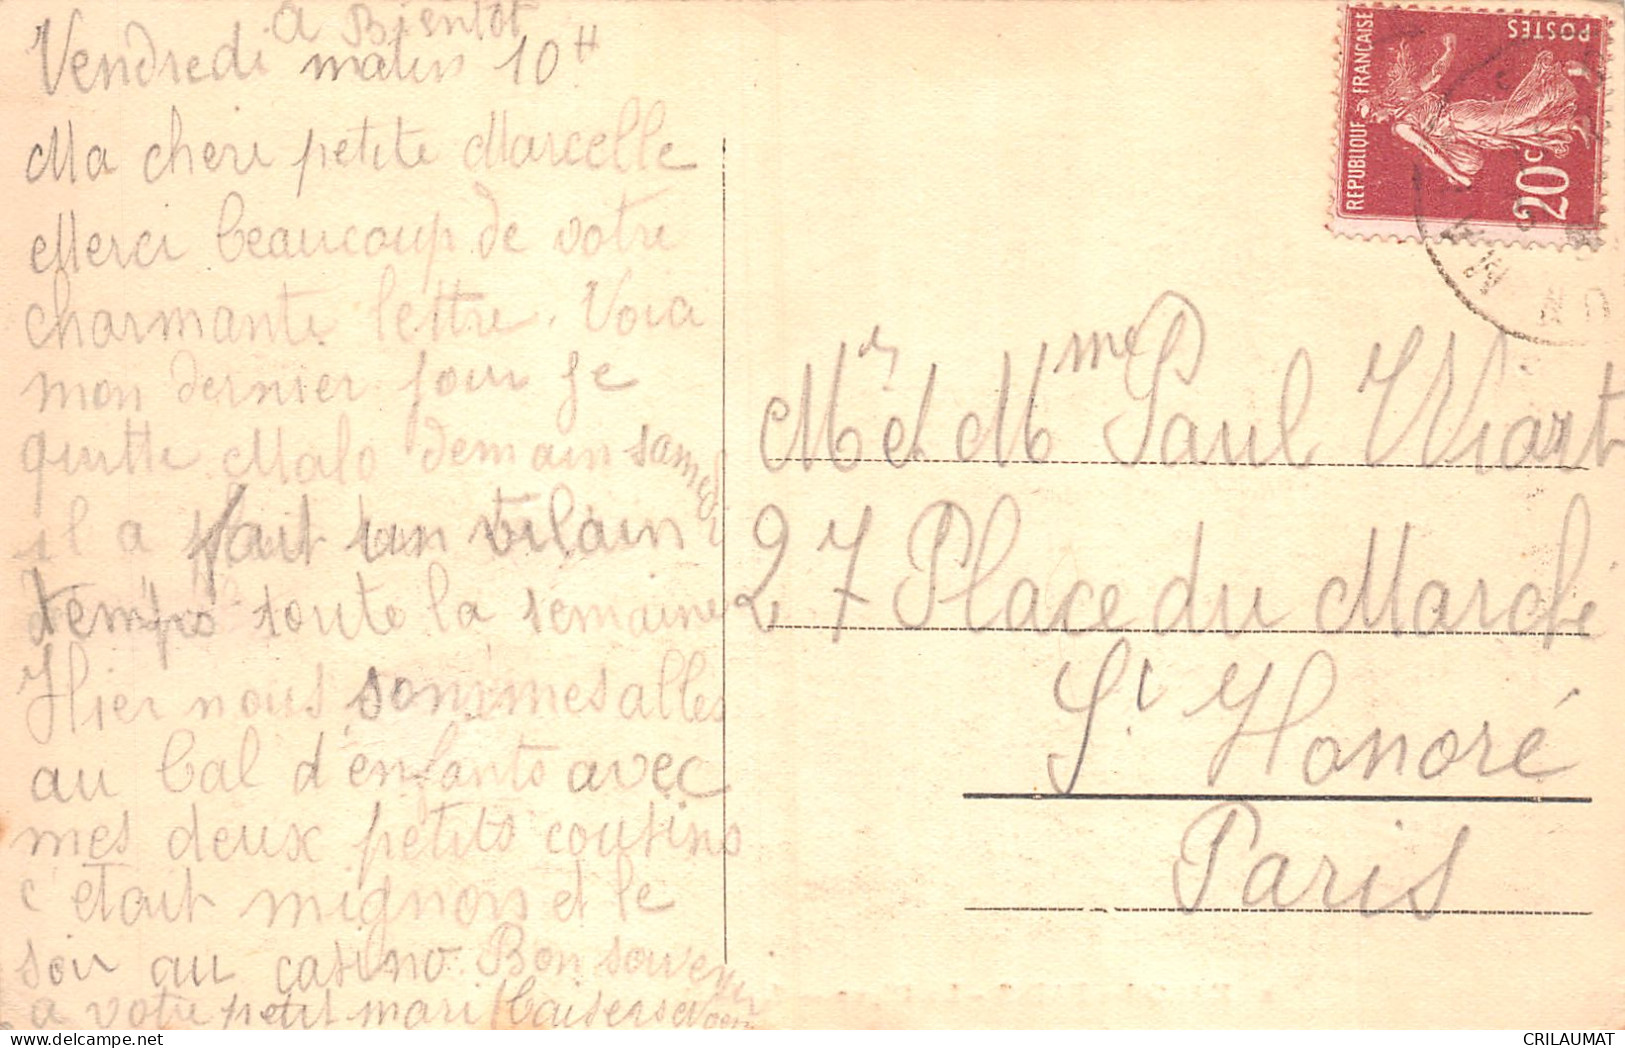 a Bientot
Vendredi matin 10H
Ma cheri petite Marcelle
Merci beaucoup de votre
charmante lettre. Voici
mon dernier jour je
quitte Malo demain samedi
il a fait un vilain
temps toute la semaine
Hier nous sommes alles
au bal d'enfants avec
mes deux petits cousins
c'etait mignon et le
soir au casino. Bon souvenir
a votre petit mari Baisers
Mr et Mme Paul Wiart
27 Place du Marché
St Honoré
Paris
REPUBLIQUE FRANÇAISE
POSTES
20c
CRILAUMAT